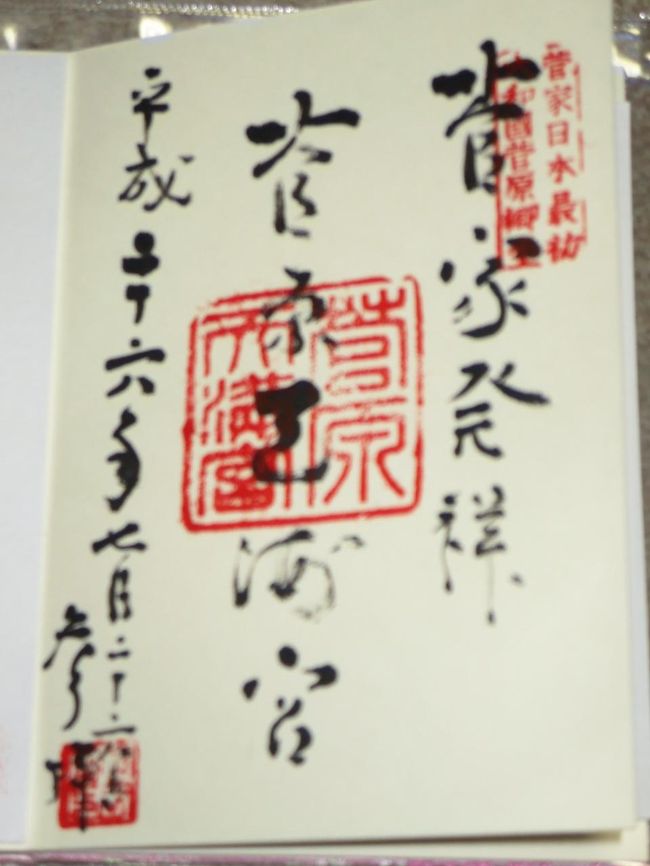 菅家日本最初
和國菅原郷
菅家発祥
菅原天満宮
菅原
天満宮
平成二十六年七月二十六日
参拝